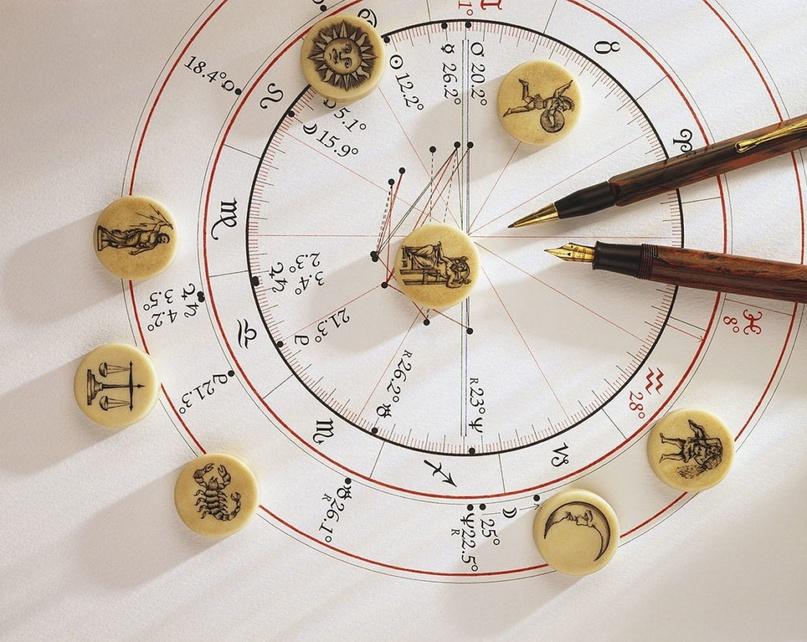 ♊
1°
♉
♈
♓
8°
♒
28°
♑
♐
♏
♎
♍
♌
♋
18.4° ☊
☉ 12.2°
☿ 26.2°
♂ 20.2°
5.1°
☽ 15.9°
♃ 3.4°
2.3°
♀ 21.3°
R 26.2° ♅
R 23° ♆
♃ 4.2°
3.5°
♀ 21.3°
♅ 26.1°
R
25° ☽
♆ 22.5°
R